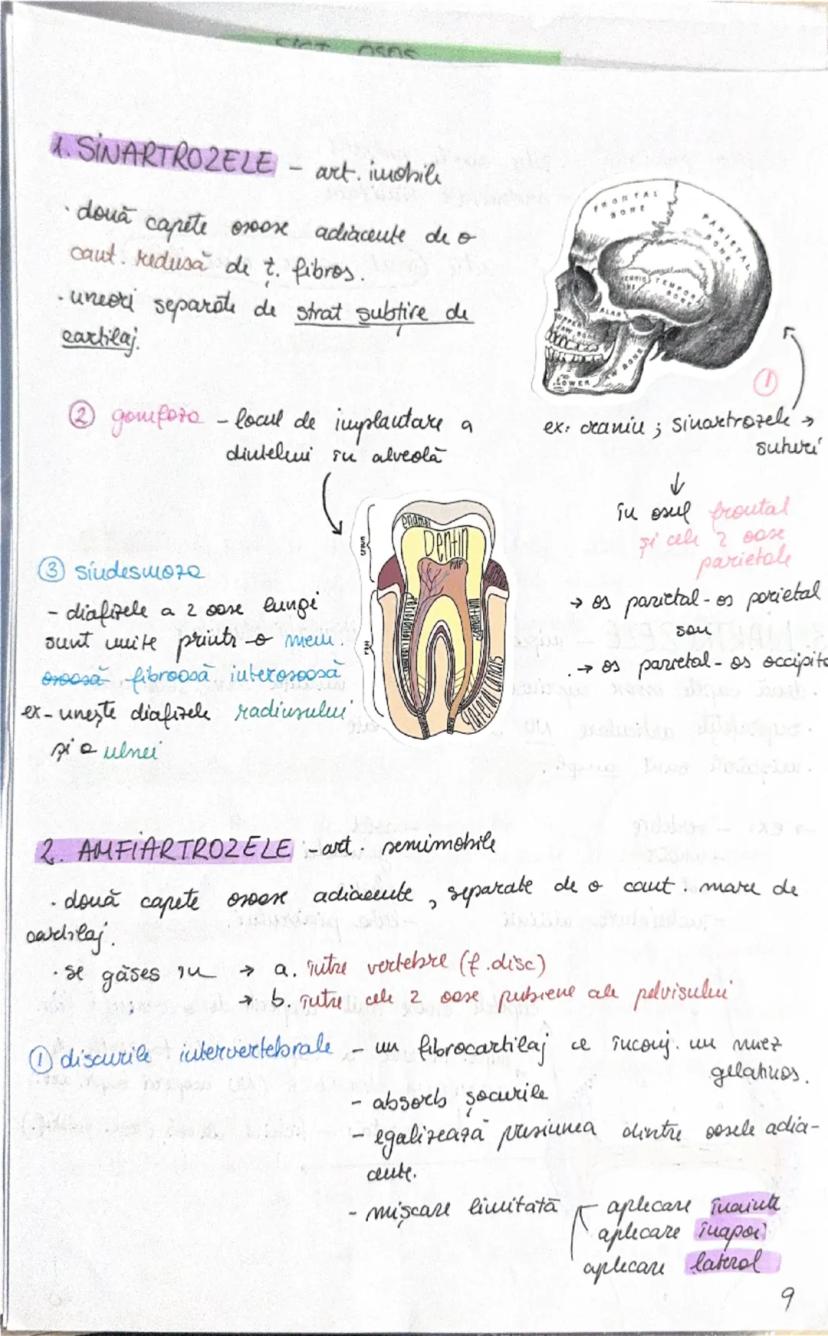 SIST OSOS
1. SINARTROZELE - art. imobile
· două capete osoase adiacente de o
cant. redusă de ț. fibros.
· uneori separate de strat subțire de
cartilaj.
FRONTAL
BONE
PARIETAL
BONE
TEMPORAL
MALAR
UPPER
JAW
LOWER JAW BONE
①
ex: craniu ; sinartrozele →
suturi
↓
în osul frontal
și cele 2 oase
parietale
→ os parietal - os parietal
sau
→ os parietal - os occipita
② gomfoza - locul de implantare a
dintelui în alveolă
Dentin
③ sindesmoza
- diafizele a 2 oase lungi
sunt unite printr-o mem.
osoasă fibroasă interosoasă
ex - unește diafizele radiusului
și a ulnei
2. AMFIARTROZELE - art. semimobile
· două capete osoase adiacente, separate de o cant. mare de
cartilaj.
· se găses în → a. între vertebre (f. disc)
→ b. între cele 2 oase pubiene ale pelvisului
① discurile intervertebrale - un fibrocartilaj ce înconj. un nuez
gelatinos.
- absorb șocurile
- egalizează presiunea dintre oasele adia-
cente.
- mișcare limitată aplecare înainte
aplecare înapoi
aplecare lateral
9